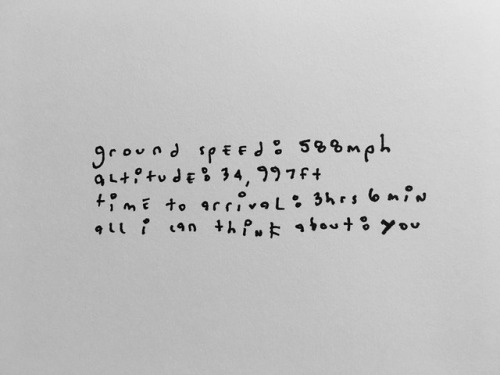 ground spEEd: 588mph
aLtitudE: 34,997ft
timE to arrivaL: 3hrs 6 miN
aLL i can thiNk about: you